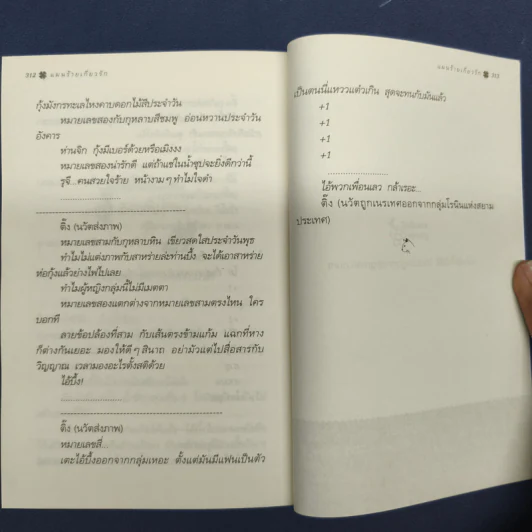 312 แผนร้ายเกี้ยวรัก
กุ้งมังกรทะเลไหงคาบดอกไม้สีประจำวัน
หมายเลขสองกับกุหลาบสีชมพู อ่อนหวานประจำวัน
อังคาร
ห่านจิก กุ้งมีเบอร์ด้วยหรือเมิงงง
หมายเลขสองน่ารักดี แต่ถ้าแช่ในน้ำซุปจะยิ่งดีกว่านี้
รูจี...คนสวยใจร้าย หน้างามๆ ทำไมใจดำ
........................
---------------------------------------
ติ๊ง (นวัตส่งภาพ)
หมายเลขสามกับกุหลาบหิน เขียวสดใสประจำวันพุธ
ทำไมไม่แต่งภาพกับสาหร่ายล่ะท่านบึ้ง จะได้เอาสาหร่าย
ห่อกุ้งแล้วย่างไฟไปเลย
ทำไมผู้หญิงกลุ่มนี้ไม่มีเมตตา
หมายเลขสองแตกต่างจากหมายเลขสามตรงไหน ใคร
บอกที
ลายข้อปล้องที่สาม กับเส้นตรงข้ามแก้ม แฉกที่หาง
ก็ต่างกันเยอะ มองให้ดีๆ สินาถ อย่ามัวแต่ไปสื่อสารกับ
วิญญาณ เวลามองอะไรตั้งสติด้วย
ไอ้บึ้ง!
........................
---------------------------------------
ติ๊ง (นวัตส่งภาพ)
หมายเลขสี่...
เตะไอ้บึ้งออกจากกลุ่มเหอะ ตั้งแต่มันมีแฟนเป็นตัว
แผนร้ายเกี้ยวรัก 313
เป็นตนนี่แหววแต๋วเกิน สุดจะทนกับมันแล้ว
+1
+1
+1
+1
........................
ไอ้พวกเพื่อนเลว กล้าเรอะ...
ติ๊ง (นวัตถูกเนรเทศออกจากกลุ่มโรนินแห่งสยาม
ประเทศ)